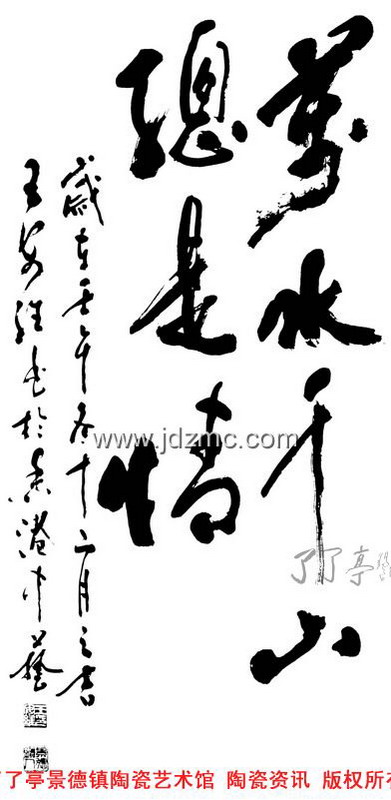 萬水千山
總是情
歲在壬午冬十二月之吉
王 書於香港中藝
www.jdzmc.com
了了亭
了亭景德镇陶瓷艺术馆 陶瓷资讯 版权所有